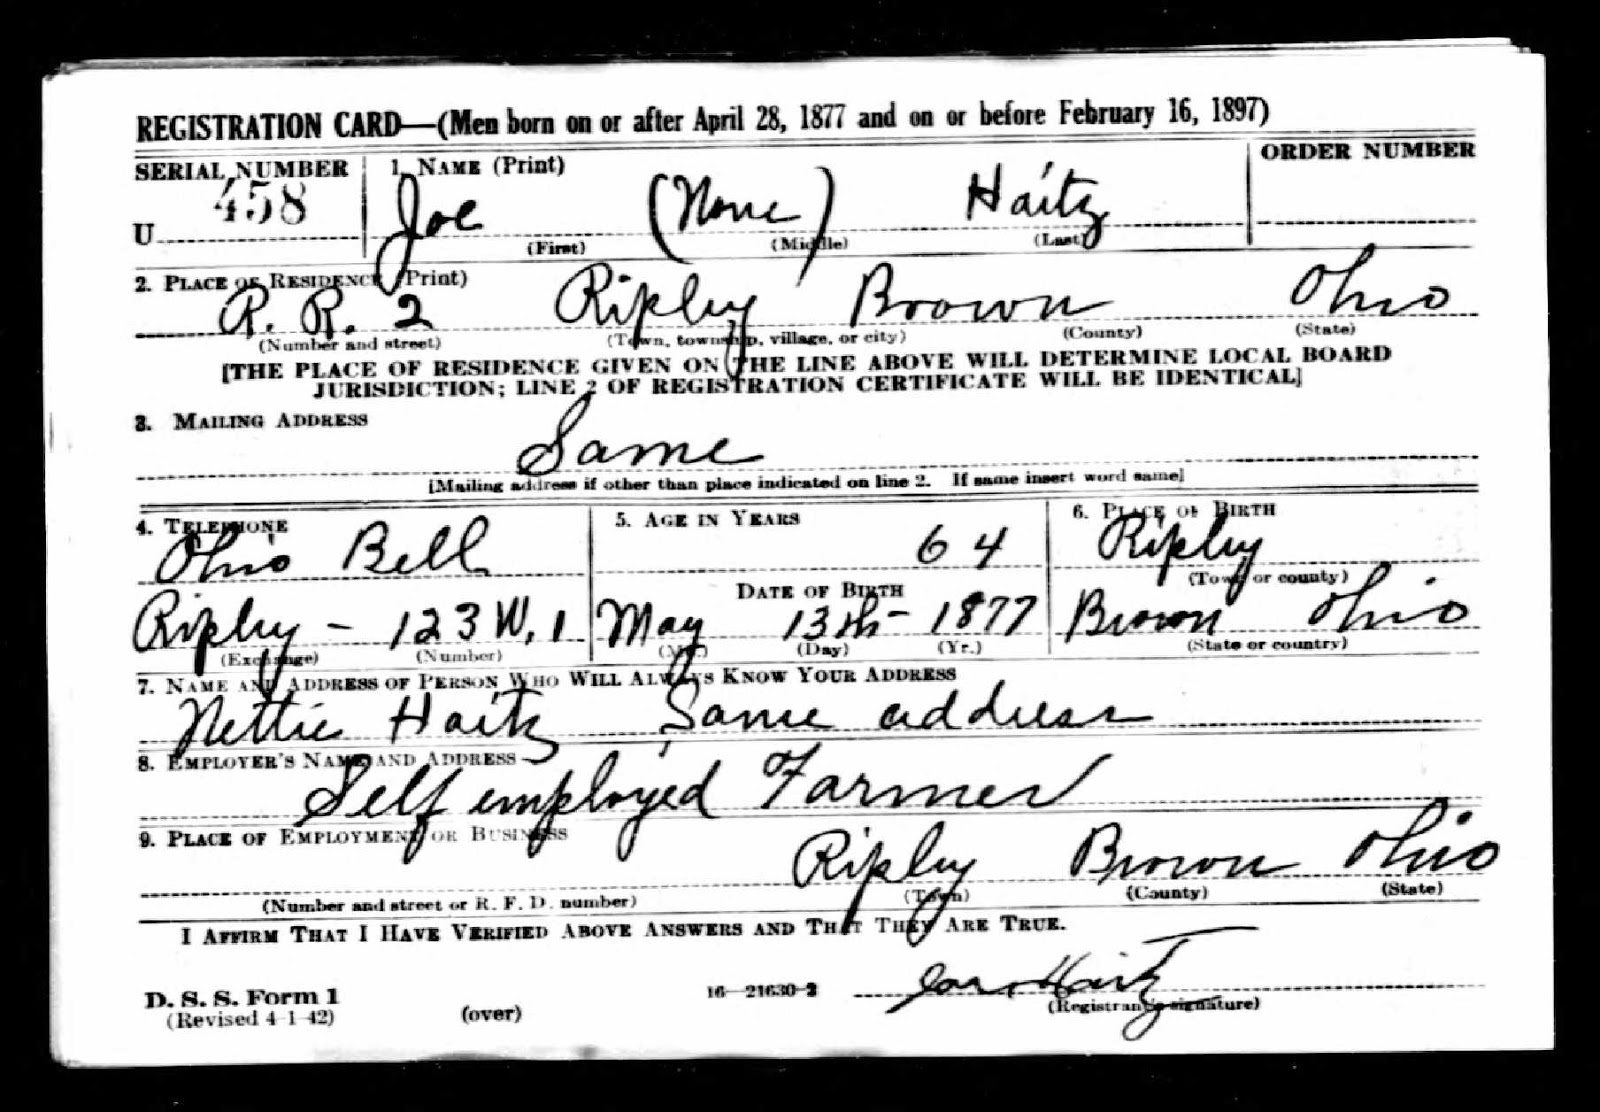 REGISTRATION CARD—(Men born on or after April 28, 1877 and on or before February 16, 1897)
SERIAL NUMBER 1. NAME (Print) ORDER NUMBER
U 458 Joe (None) Haitz
(First) (Middle) (Last)
2. PLACE OF RESIDENCE (Print)
R. R. 2 Ripley Brown Ohio
(Number and street) (Town, township, village, or city) (County) (State)
[THE PLACE OF RESIDENCE GIVEN ON THE LINE ABOVE WILL DETERMINE LOCAL BOARD
JURISDICTION; LINE 2 OF REGISTRATION CERTIFICATE WILL BE IDENTICAL]
3. MAILING ADDRESS
Same
[Mailing address if other than place indicated on line 2. If same insert word same]
4. TELEPHONE 5. AGE IN YEARS 6. PLACE OF BIRTH
Ohio Bell 64 Ripley
DATE OF BIRTH (Town or county)
Ripley - 123 W. 1 May 13th - 1877 Brown Ohio
(Exchange) (Number) (Mo.) (Day) (Yr.) (State or country)
7. NAME AND ADDRESS OF PERSON WHO WILL ALWAYS KNOW YOUR ADDRESS
Nettie Haitz Same address
8. EMPLOYER'S NAME AND ADDRESS
Self employed Farmer
9. PLACE OF EMPLOYMENT OR BUSINESS
Ripley Brown Ohio
(Number and street or R. F. D. number) (Town) (County) (State)
I AFFIRM THAT I HAVE VERIFIED ABOVE ANSWERS AND THAT THEY ARE TRUE.
D. S. S. Form 1 16—21630-2 Haitz
(Revised 4-1-42) (over) (Registrant's signature)